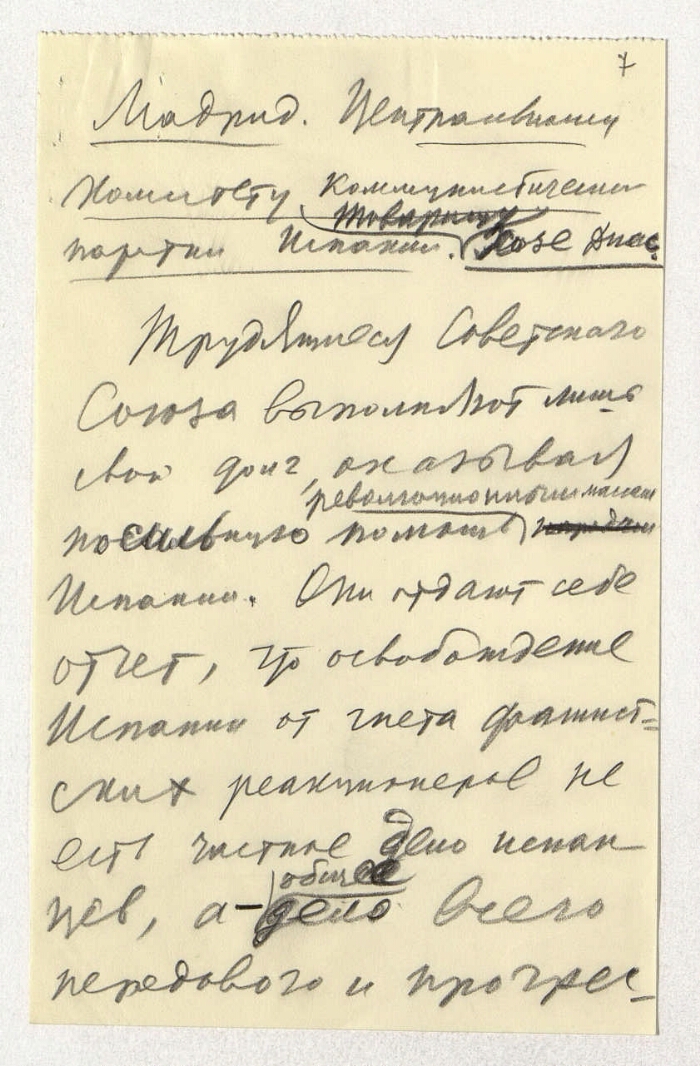 7
Мадрид. Центральному
Комитету Коммунистической
товарищу
партии Испании. Хозе Диас.
Трудящиеся Советского
Союза выполняют лишь
свой долг, оказывая
революционным массам
посильную помощь народам
Испании. Они отдают себе
отчет, что освобождение
Испании от гнета фашист=
ских реакционеров не
есть частное дело испан-
общее
цев, а – дело всего
передового и прогрес-